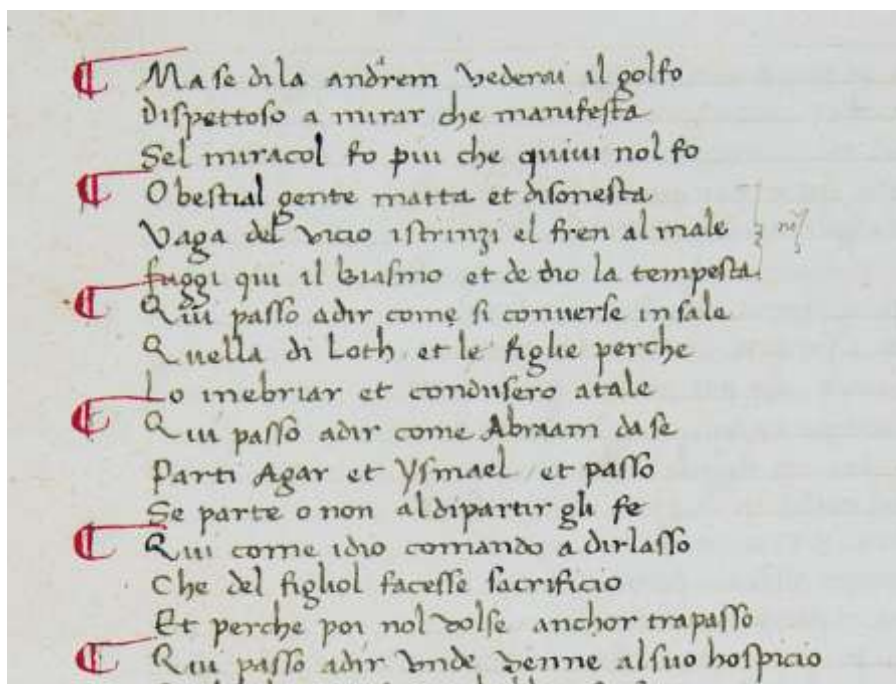 Ma se di la andrem vederai il golfo
Dispettoso a mirar che manifesta
Sel miracol fo piu che quiui nol fo
O bestial gente matta et disonesta
Vaga del vicio istrinzi el fren al male
fuggi qui il biasmo et de dio la tempesta
Qui passo adir come si converse in sale
Quella di Loth et le figlie perche
Lo inebriar et condusero atale
Qui passo adir come Abraam da se
Parti Agar et Ysmael et passo
Se parte o non al dipartir gli fe
Qui come idio comando a dir lasso
Che del figliol facesse sacrificio
Et perche poi nol volse anchor trapasso
Qui passo adir vnde venne al suo hospicio